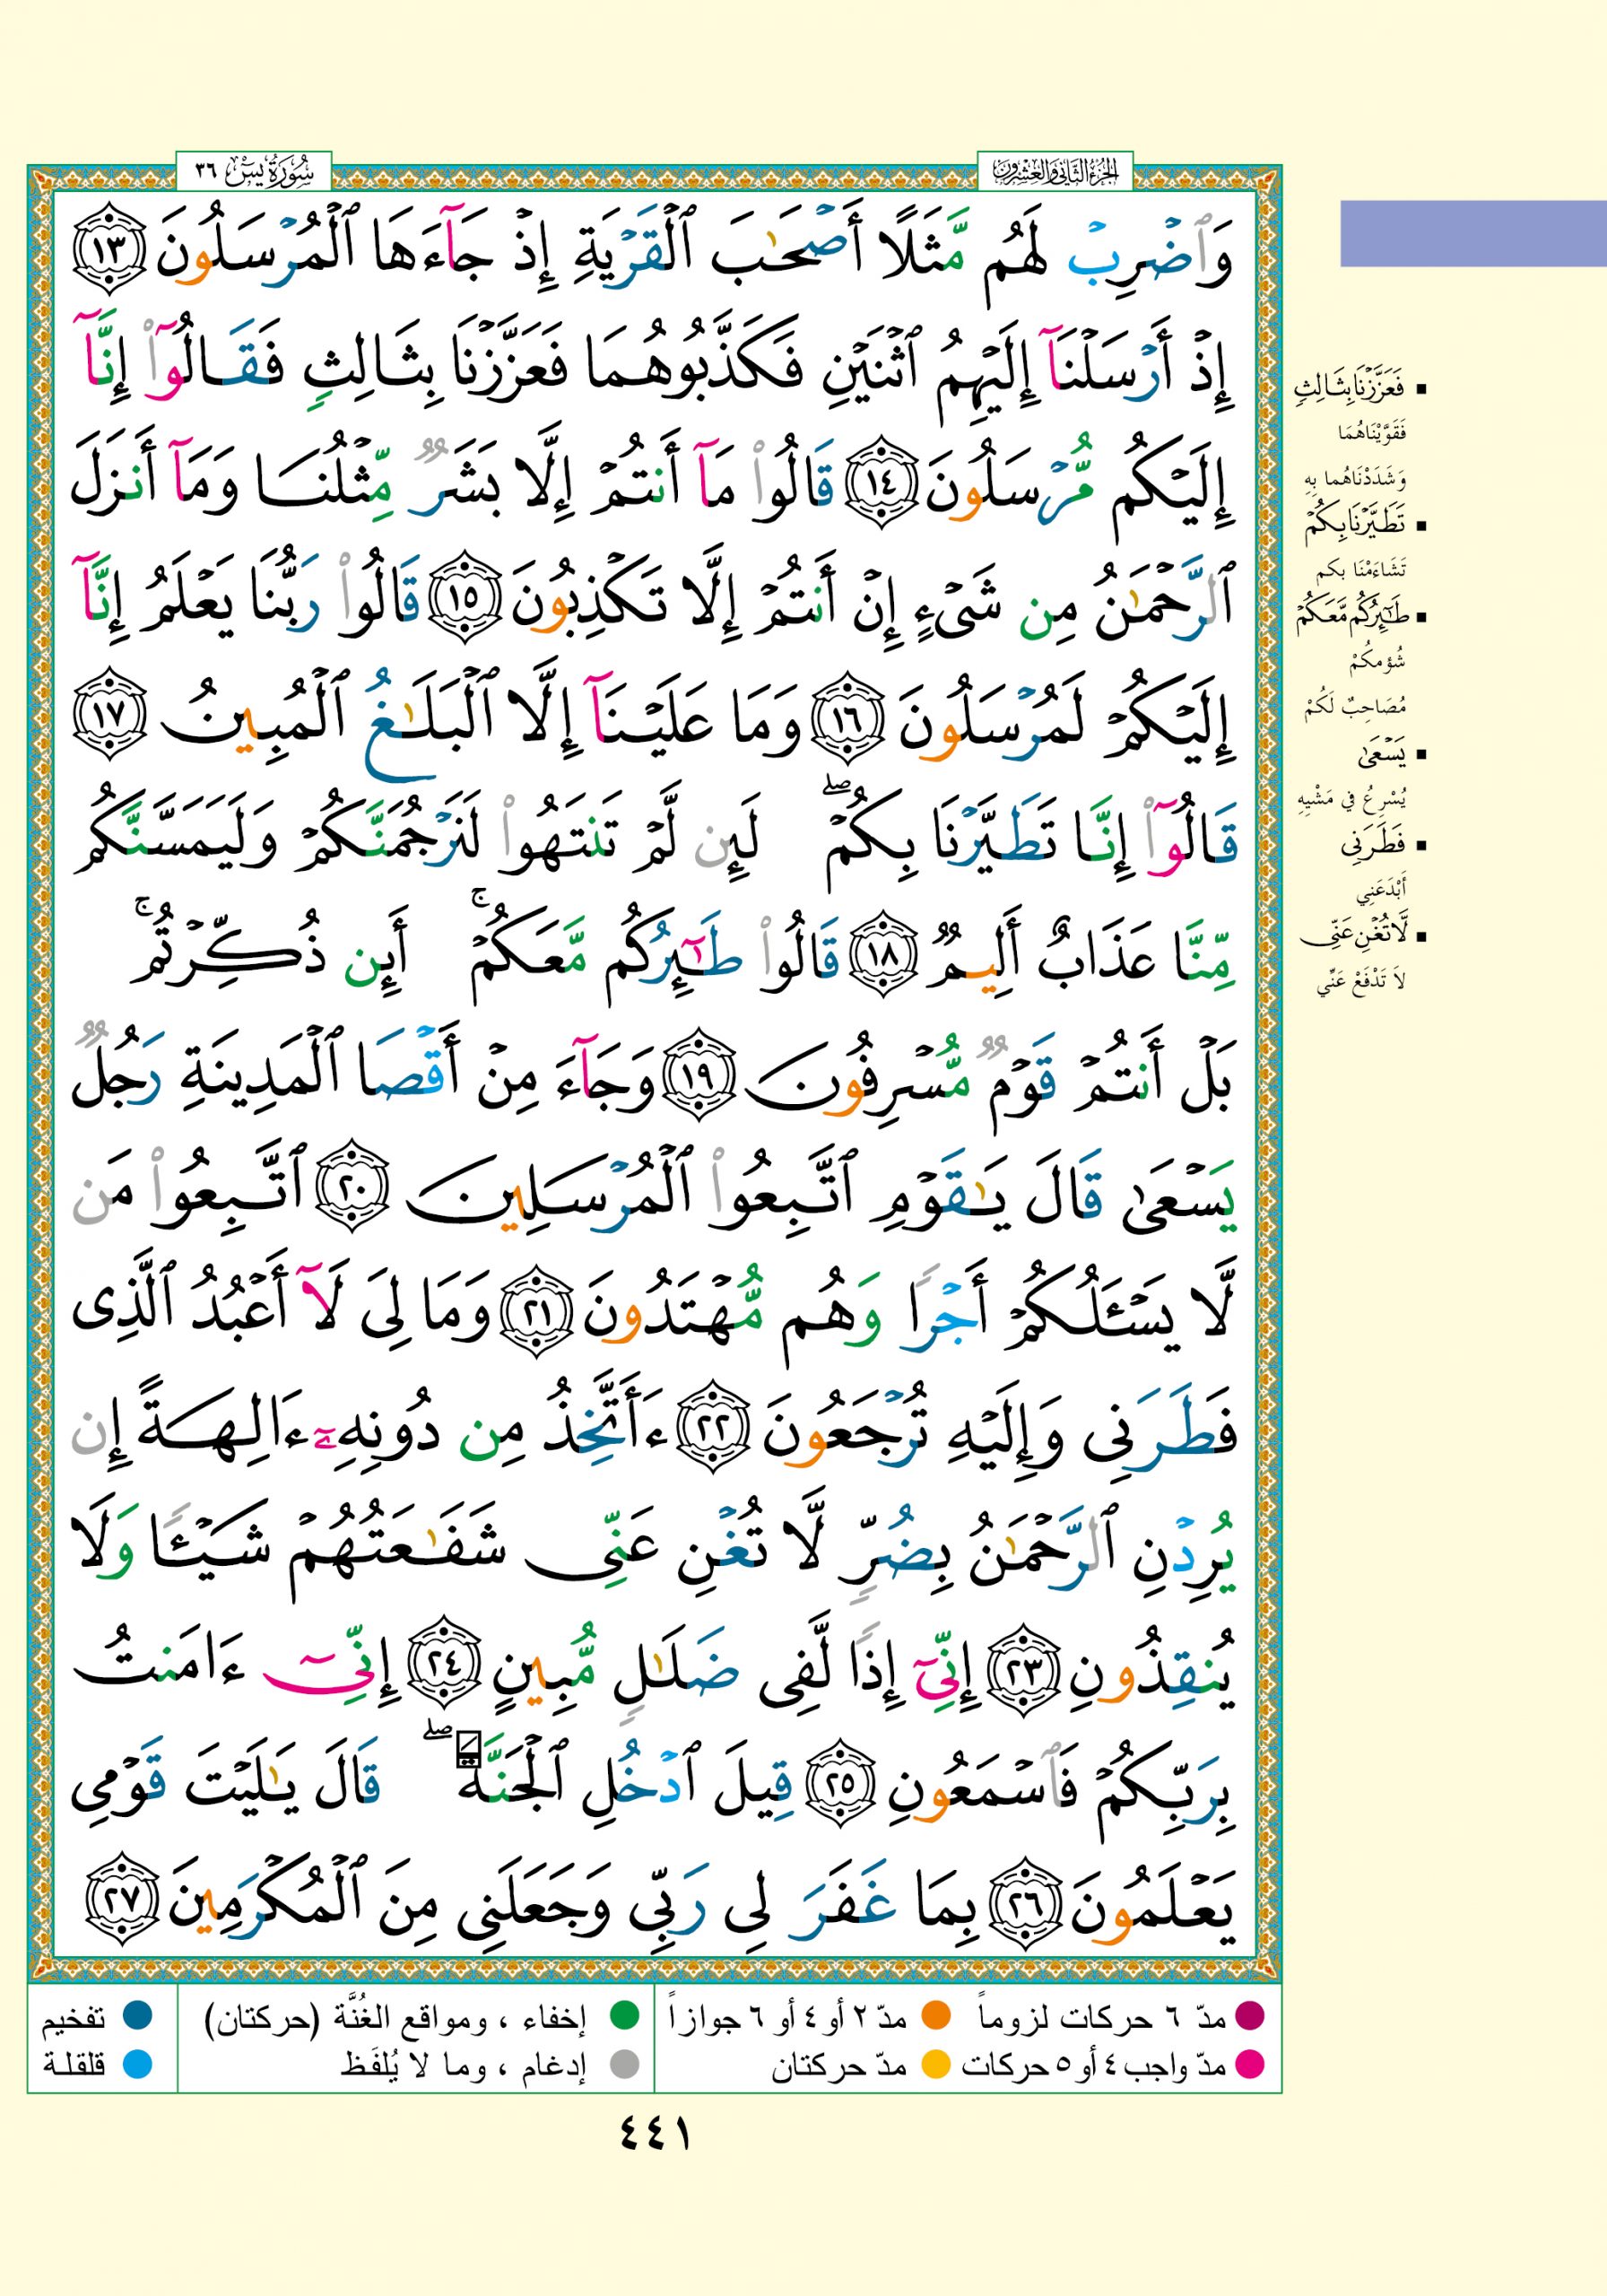 الجزء الثاني والعشرون
سورة يس ٣٦
وَٱضْرِبْ لَهُم مَّثَلًا أَصْحَٰبَ ٱلْقَرْيَةِ إِذْ جَآءَهَا ٱلْمُرْسَلُونَ ١٣
إِذْ أَرْسَلْنَآ إِلَيْهِمُ ٱثْنَيْنِ فَكَذَّبُوهُمَا فَعَزَّزْنَا بِثَالِثٍ فَقَالُوٓا۟ إِنَّآ
إِلَيْكُم مُّرْسَلُونَ ١٤ قَالُوا۟ مَآ أَنتُمْ إِلَّا بَشَرٌ مِّثْلُنَا وَمَآ أَنزَلَ
ٱلرَّحْمَٰنُ مِن شَىْءٍ إِنْ أَنتُمْ إِلَّا تَكْذِبُونَ ١٥ قَالُوا۟ رَبُّنَا يَعْلَمُ إِنَّآ
إِلَيْكُمْ لَمُرْسَلُونَ ١٦ وَمَا عَلَيْنَآ إِلَّا ٱلْبَلَٰغُ ٱلْمُبِينُ ١٧
قَالُوٓا۟ إِنَّا تَطَيَّرْنَا بِكُمْ ۖ لَئِن لَّمْ تَنتَهُوا۟ لَنَرْجُمَنَّكُمْ وَلَيَمَسَّنَّكُم
مِّنَّا عَذَابٌ أَلِيمٌ ١٨ قَالُوا۟ طَٰٓئِرُكُم مَّعَكُمْ ۚ أَئِن ذُكِّرْتُم ۚ
بَلْ أَنتُمْ قَوْمٌ مُّسْرِفُونَ ١٩ وَجَآءَ مِنْ أَقْصَا ٱلْمَدِينَةِ رَجُلٌ
يَسْعَىٰ قَالَ يَٰقَوْمِ ٱتَّبِعُوا۟ ٱلْمُرْسَلِينَ ٢٠ ٱتَّبِعُوا۟ مَن
لَّا يَسْـَٔلُكُمْ أَجْرًا وَهُم مُّهْتَدُونَ ٢١ وَمَا لِىَ لَآ أَعْبُدُ ٱلَّذِى
فَطَرَنِى وَإِلَيْهِ تُرْجَعُونَ ٢٢ ءَأَتَّخِذُ مِن دُونِهِۦٓ ءَالِهَةً إِن
يُرِدْنِ ٱلرَّحْمَٰنُ بِضُرٍّ لَّا تُغْنِ عَنِّى شَفَٰعَتُهُمْ شَيْـًٔا وَلَا
يُنقِذُونِ ٢٣ إِنِّىٓ إِذًا لَّفِى ضَلَٰلٍ مُّبِينٍ ٢٤ إِنِّىٓ ءَامَنتُ
بِرَبِّكُمْ فَٱسْمَعُونِ ٢٥ قِيلَ ٱدْخُلِ ٱلْجَنَّةَ ۖ قَالَ يَٰلَيْتَ قَوْمِى
يَعْلَمُونَ ٢٦ بِمَا غَفَرَ لِى رَبِّى وَجَعَلَنِى مِنَ ٱلْمُكْرَمِينَ ٢٧
▪ فَعَزَّزْنَا بِثَالِثٍ
فَقَوَّيْنَاهُمَا
وَشَدَدْنَاهُما بِهِ
▪ تَطَيَّرْنَا بِكُمْ
تَشَاءَمْنَا بكم
▪ طَٰٓئِرُكُم مَّعَكُمْ
شُؤمكُمْ
مُصَاحِبٌ لَكُمْ
▪ يَسْعَىٰ
يُسْرِعُ في مَشْيِهِ
▪ فَطَرَنِى
أَبْدَعَنِي
▪ لَّا تُغْنِ عَنِّى
لاَ تَدْفَعْ عَنِّي
مدّ ٦ حركات لزوماً مدّ ٢ أو ٤ أو ٦ جوازاً إخفاء ، ومواقع الغُنَّة (حركتان) تفخيم
مدّ واجب ٤ أو ٥ حركات مدّ حركتان إدغام ، وما لا يُلفَظ قلقلة
٤٤١